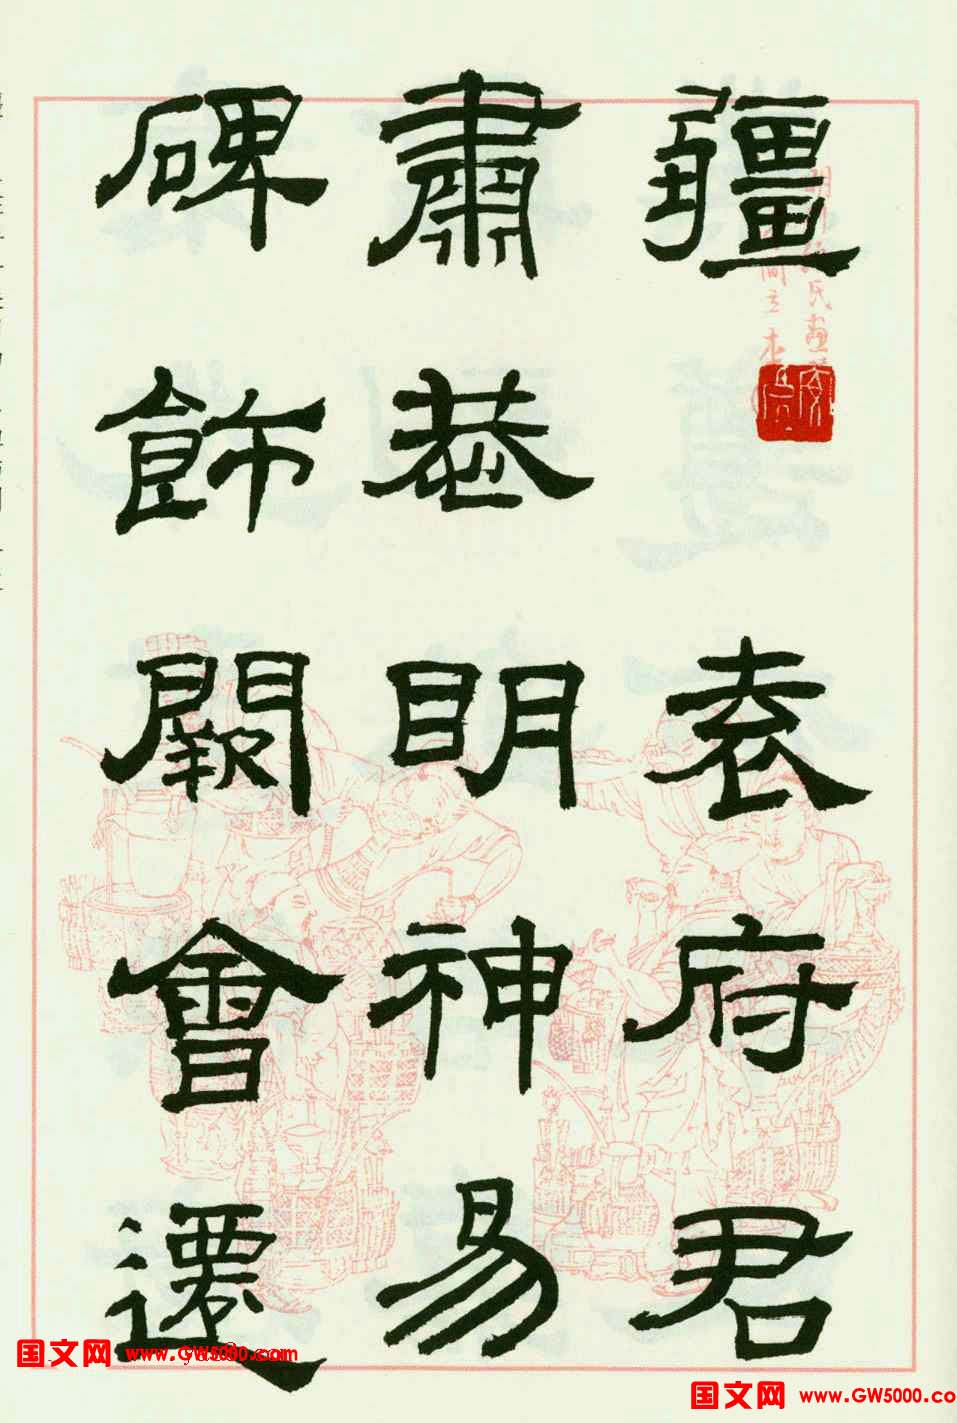 疆袁府君
肅恭明神易
碑飾闕會遷
国文网 www.GW5000.com
国文网 www.GW5000.co